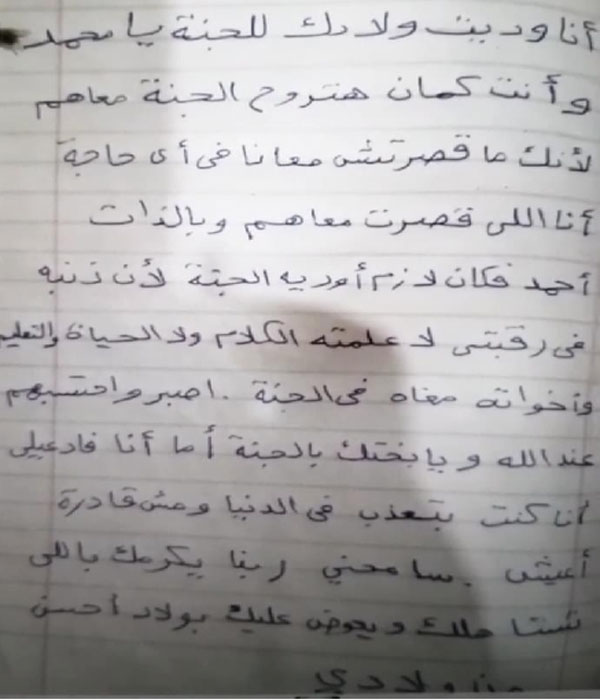 أنا وديت ولادك للجنة يا محمد
وأنت كمان هتروح الجنة معاهم
لأنك ما قصرتش معانا في أى حاجة
أنا اللى قصرت معاهم وبالذات
أحمد فكان لازم أوديه الجنة لأن ذنبه
فى رقبتى لا علمته الكلام ولا الحياة والتعليم
وأخواته معاه فى الجنة . اصبر واحتسبهم
عند الله ويا بختك بالجنة أما أنا فادعيلى
أنا كنت بتعذب فى الدنيا ومش قادرة
أعيش . سامحني ربنا يكرمك باللى
تستاهلك ويعوض عليك بولاد أحسن
من ولادي